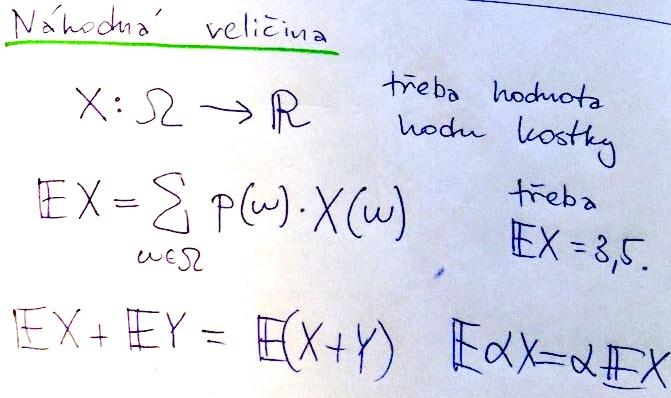 Náhodná veličina
X: Ω → ℝ
třeba hodnota
hodu kostky
𝔼X = Σ p(ω)·X(ω)
ω∈Ω
třeba
𝔼X = 3,5.
𝔼X + 𝔼Y = 𝔼(X+Y)
𝔼αX = α𝔼X